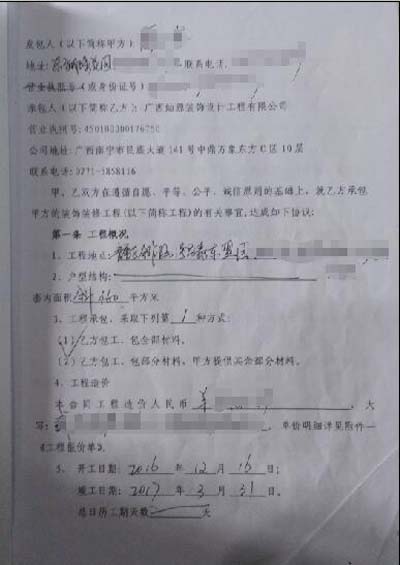 发包人（以下简称甲方）
地址： 联系电话：
营业执照号（或身份证号）
承包人（以下简称乙方）：广西灿源装饰设计工程有限公司
营业执照号：
公司地址：广西南宁市民族大道141号中鼎万象东方C区10层
联系电话：0771-5858116
甲、乙双方在遵循自愿、平等、公平、诚信原则的基础上，就乙方承包
甲方的装饰装修工程（以下简称工程）的有关事宜，达成如下协议：
第一条 工程概况
1、工程地点：
2、户型结构：
套内面积 平方米
3、工程承包，采取下列第 1 种方式：
（1）乙方包工、包全部材料。
（2）乙方包工、包部分材料，甲方提供其余部分材料。
4、工程造价
本合同工程造价人民币 大
写： ，单价明细详见附件一
《工程报价单》。
5、开工日期：2016 年 12 月 16 日；
竣工日期：2017 年 3 月 31 日。
总日历工期天数 天